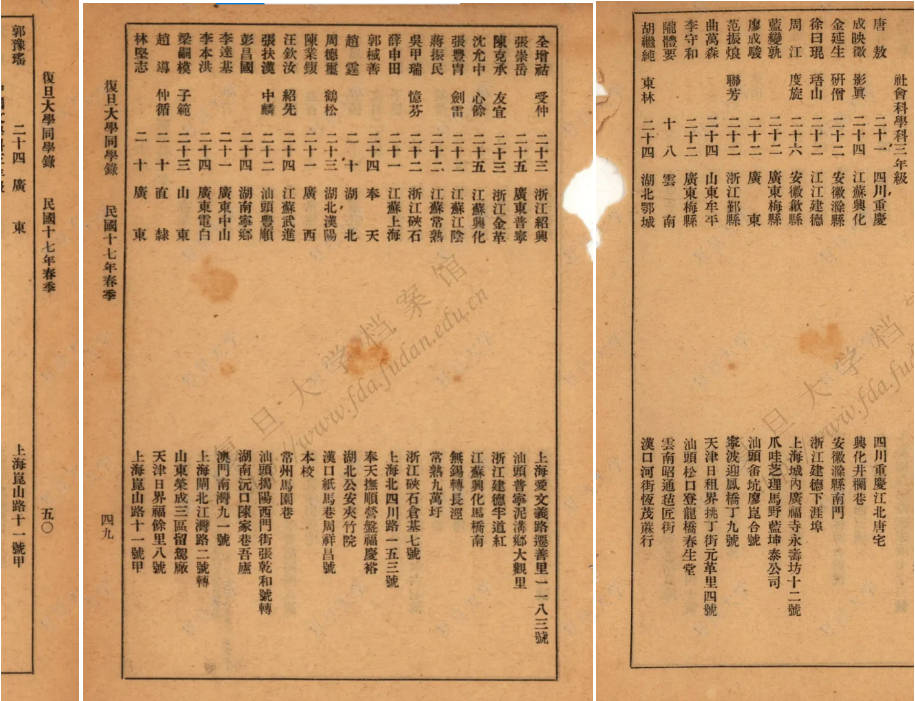 社會科學科三年級
唐敖 二十一 四川重慶 四川重慶江北唐宅
成映徵 影眞 二十四 江蘇興化 興化井欄巷
金延生 研僧 二十二 安徽滁縣 安徽滁縣南門
徐曰琨 琣山 二十二 江江建德 浙江建德下涯埠
周江 度旋 二十六 安徽歙縣 上海城內廣福寺永壽坊十二號
藍變孰 二十二 廣東梅縣 爪哇芝理馬野藍坤泰公司
廖成駿 二十二 廣東 汕頭畬坑廖崑合號
范振烺 聯芳 二十二 浙江鄞縣 寧波迎鳳橋丁九號
曲萬森 二十四 山東牟平 天津日租界挑丁街元革里四號
李守和 二十二 廣東梅縣 汕頭松口寮龍橋春生堂
隴體要 十八 雲南 雲南昭通毡匠街
胡繼純 東林 二十四 湖北鄂城 漢口河街恆茂蔴行
全增祜 受仲 二十三 浙江紹興 上海愛文義路遷善里一一八三號
張崇岳 二十五 廣東普寧 汕頭普寧泥溝鄉大觀里
陳克承 友宜 二十三 浙江金革 浙江建德芉道紅
沈允中 心餘 二十五 江蘇興化 江蘇興化馬橋南
張豐冑 劍雷 二十二 江蘇江陰 無錫轉長涇
蔣振民 二十二 江蘇常熟 常熟九萬圩
吳甲瑞 憶芬 二十二 浙江硤石 浙江硤石倉基七號
薛申田 二十一 江蘇上海 上海北四川路一五三號
郭棫善 二十四 奉天 奉天撫順營盤福慶裕
趙霆 二十 湖北 湖北公安夾竹院
周德璽 鶴松 二十三 湖北漢陽 漢口紙馬巷周祥昌號
陳業鍑 二十一 廣西 本校
汪欽汝 紹先 二十四 江蘇武進 常州馬園巷
張扶漢 中麟 二十二 汕頭豐順 汕頭揭陽西門街張乾和號轉
彭昌國 二十四 湖南寧鄉 湖南沅口陳家巷吾廬
李達基 二十一 廣東中山 澳門南灣九一號
李本洪 二十四 廣東電白 上海閘北江灣路二號轉
梁嗣模 子範 二十三 山東 山東榮成三區留駕廠
趙導 仲循 二十 直隸 天津日界福餘里八號
林堅志 二十 廣東 上海崑山路十一號甲
復旦大學同學錄 民國十七年春季 四九
復旦大學同學錄 民國十七年春季 五〇
郭豫瑤 二十四 廣東 上海崑山路十一號甲
复旦大学档案馆
www.fda.fudan.edu.cn